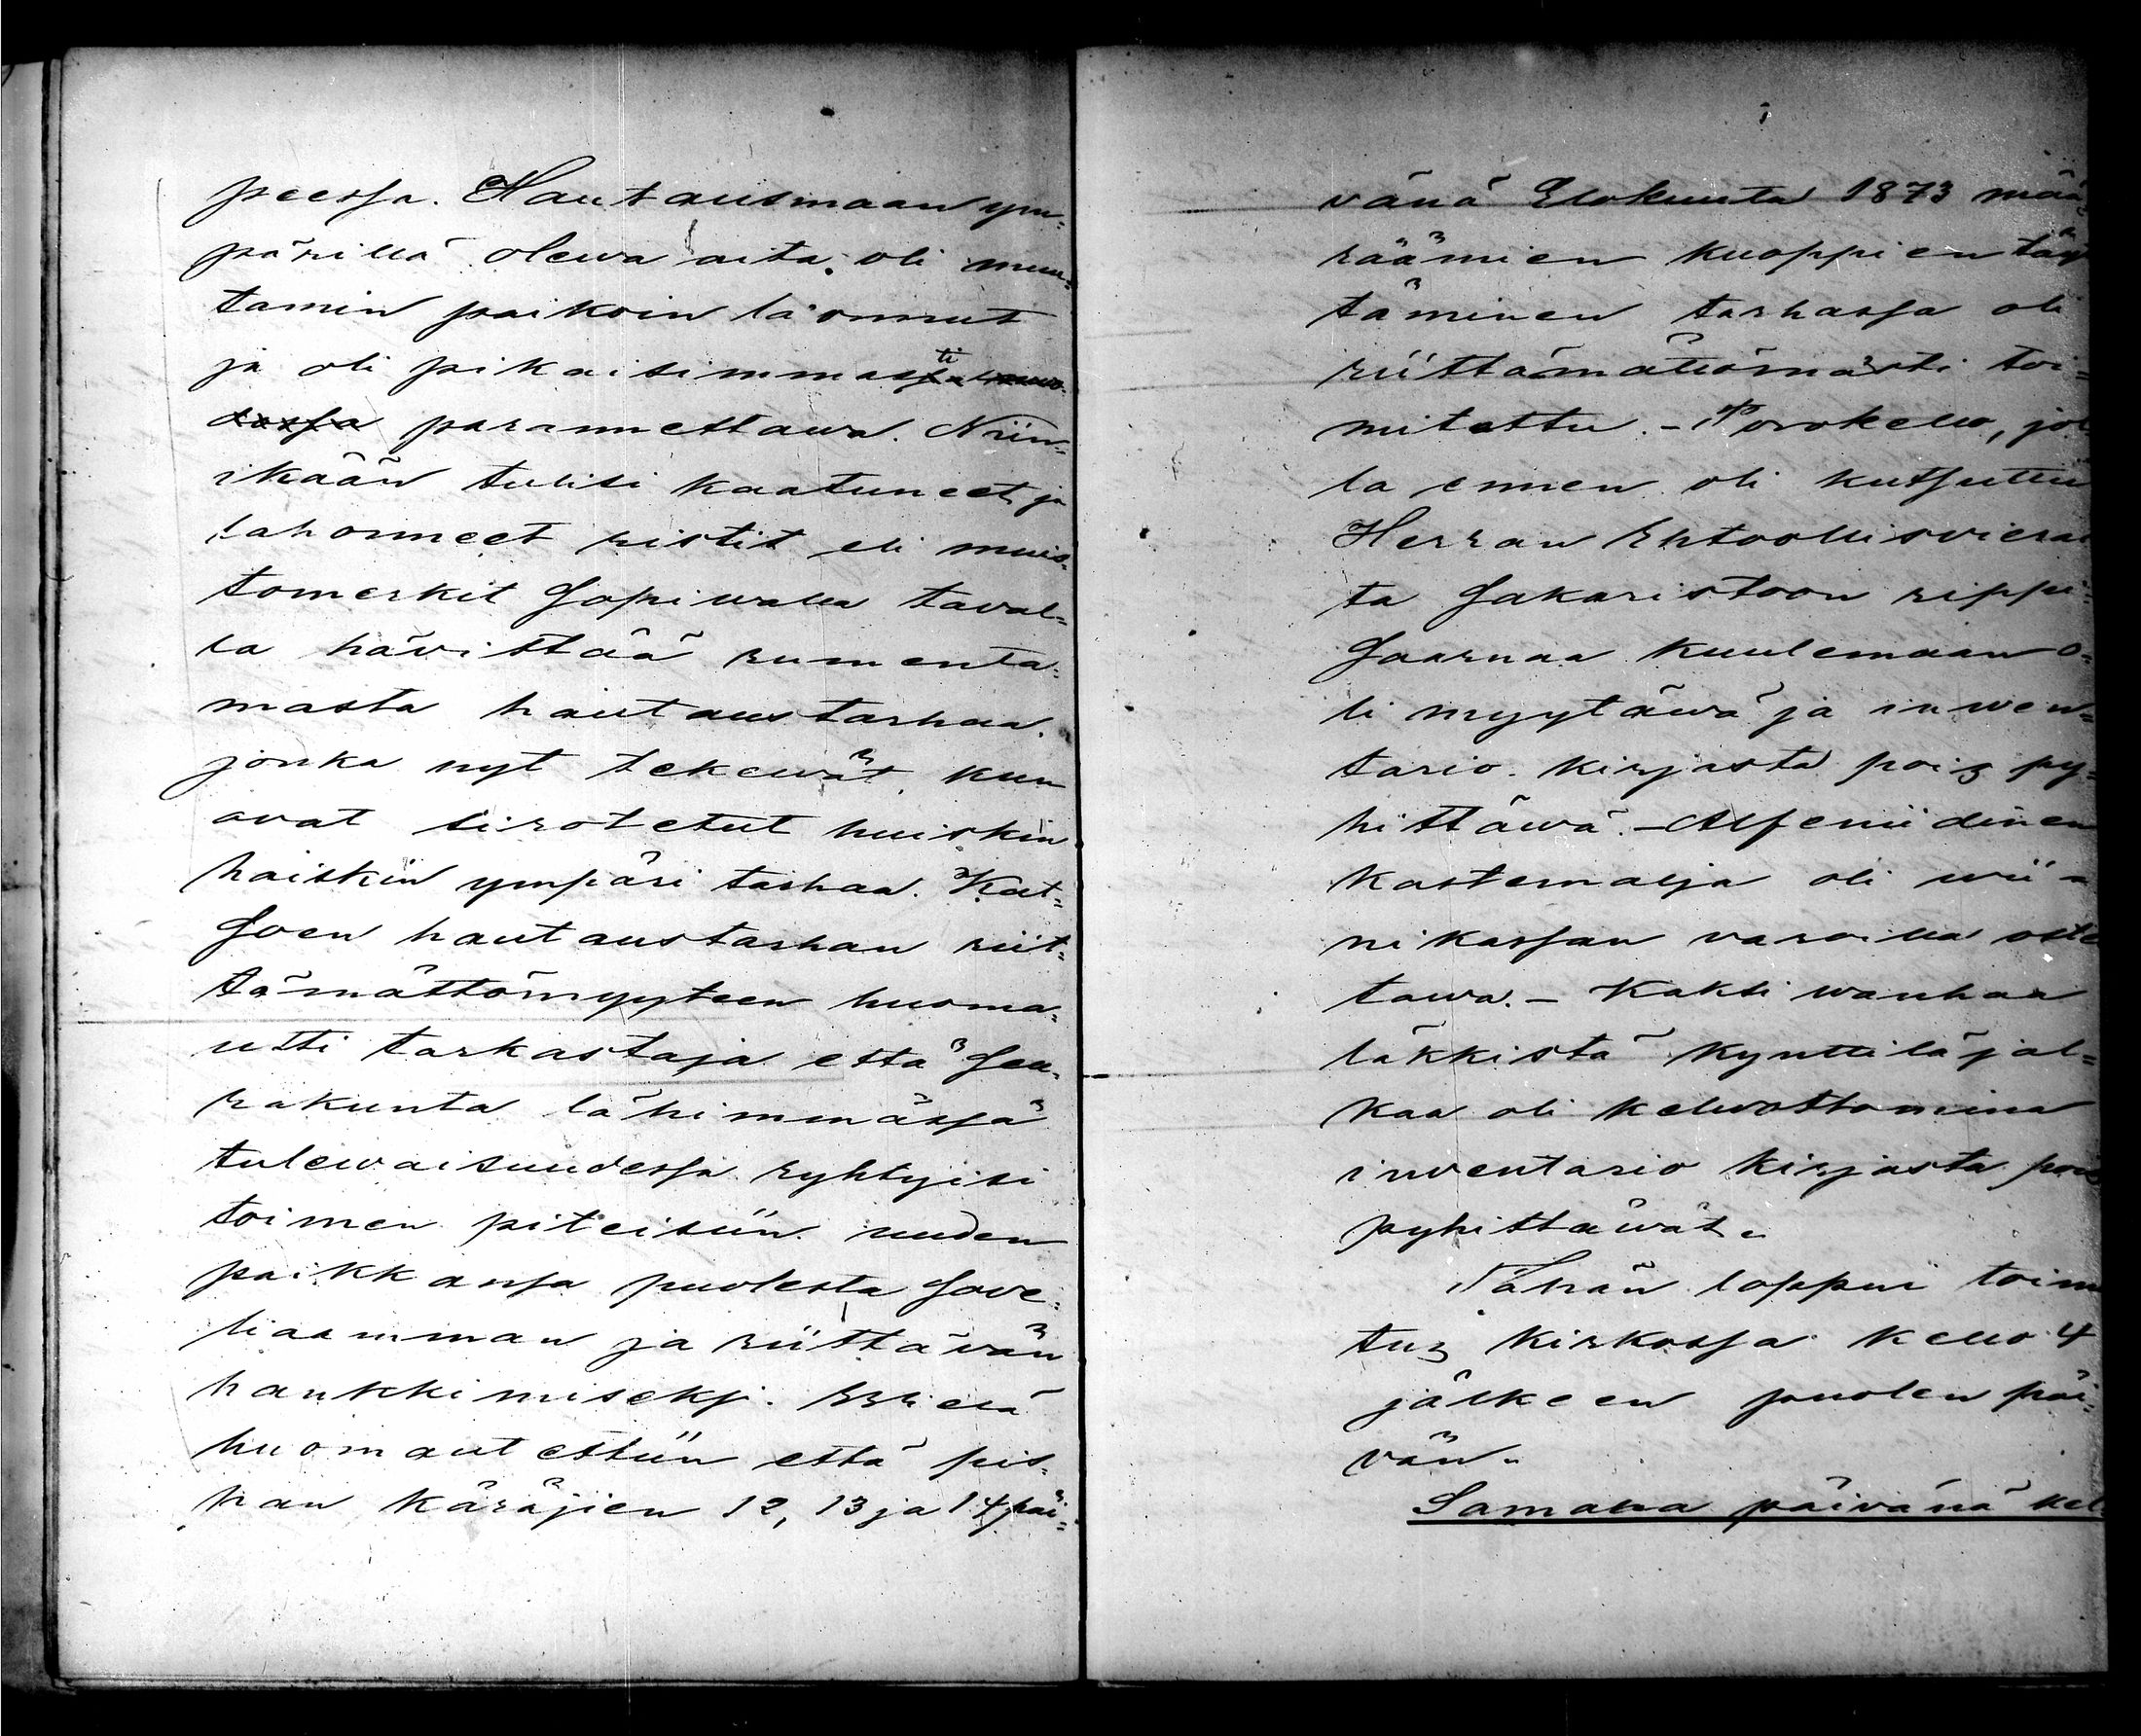 peessa. Hautausmaan ym=
pärillä olewa aita oli muu=
tamin paikoin laonnut
ja oli pikaisimmasti
parannettawa. Niin=
ikään tulisi kaatuneet ja
lahonneet ristit eli muis=
tomerkit sopiwalla taval=
la hävittää rumenta=
masta hautaustarhaa.
jonka nyt tekewät, kun
ovat sirotetut huiskin
haiskin ympäri tarhaa. Kat=
soen hautaustarhan riit=
tämättömyyteen huoma=
utti tarkastaja että seu=
rakunta lähimmässä
tulewaisuudessa ryhtyisi
toimen piteisiin uuden
paikkansa puolesta sove=
liaamman ja riittävän
hankkimiseksi. Vielä
huomautettiin että pis=
pan käräjien 12, 13 ja 14 päi=
vänä Elokuuta 1873 mää=
räämien kuoppien täyt
täminen tarhassa oli
riittämättömästi toi=
mitettu. – Porokello, jol=
la ennen oli kutsuttu
Herran Ehtoollisvierai
ta sakaristoon rippi=
saarnaa kuulemaan o=
li myytäwä ja inwen=
tario kirjasta pois py=
hittäwä. – Alfeniidinen
kastemalja oli wii=
nikassan varoilla oste
tawa. – Kaksi wanhaa
läkkistä kynttiläjal=
kaa oli kelwottomina
inventario kirjasta pois
pyhittäwät.
Tähän loppui toim
tus kirkossa kello 4
jälkeen puolen päi=
vän.
Samana päivänä kel